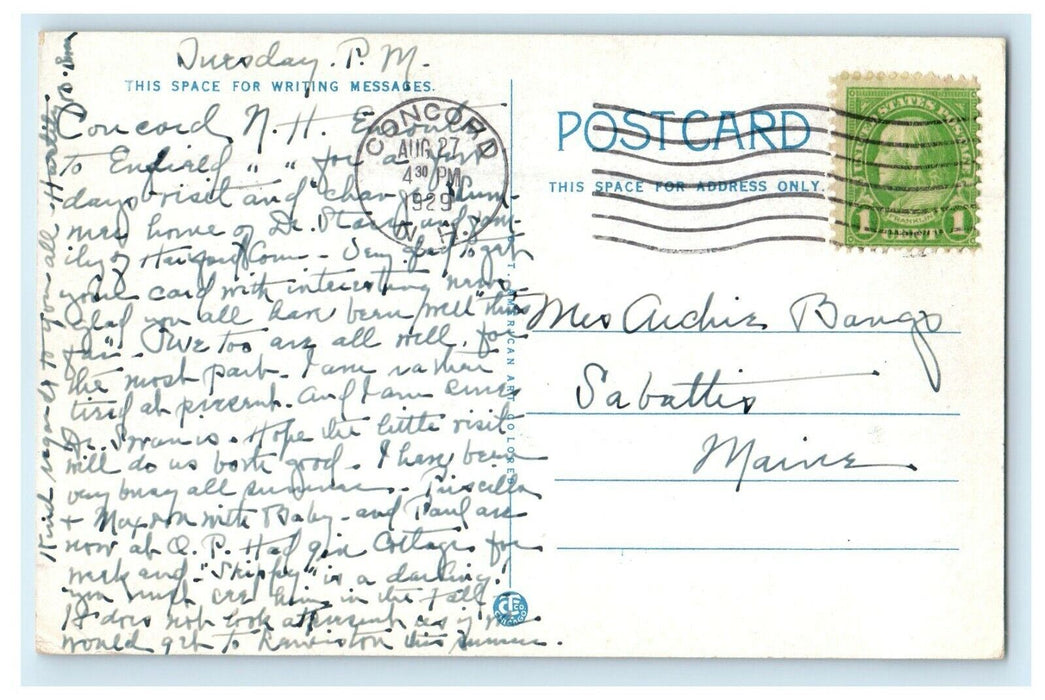 Tuesday. P. M.
THIS SPACE FOR WRITING MESSAGES.
Concord, N. H. Enroute
to Enfield " " for a few
days visit and change. Sum-
mer home of Dr. and fam-
ily of Conn. Very glad to get
your card with interesting news.
Glad you all have been "well" thus
far. We too are all well, for
the most part. I am rather
tired at present. And I am sure
Dr. Swan is. Hope the little visit
will do us both good. I have been
very busy all summer. Priscilla
+ with Baby - and Paul are
now at O. P. Had Cottage for
week and "Skippy" is a darling!
You must see him in the Fall.
It does not look at present as if we
would get to this summer.
Kind regards to you all.
CONCORD
AUG 27
4 30 PM
1929
N. H.
POST CARD
THIS SPACE FOR ADDRESS ONLY.
UNITED STATES POSTAGE
FRANKLIN
1 1
Mrs Archie Bangs
Sabattis
Maine.
C.T. AMERICAN ART COLORED